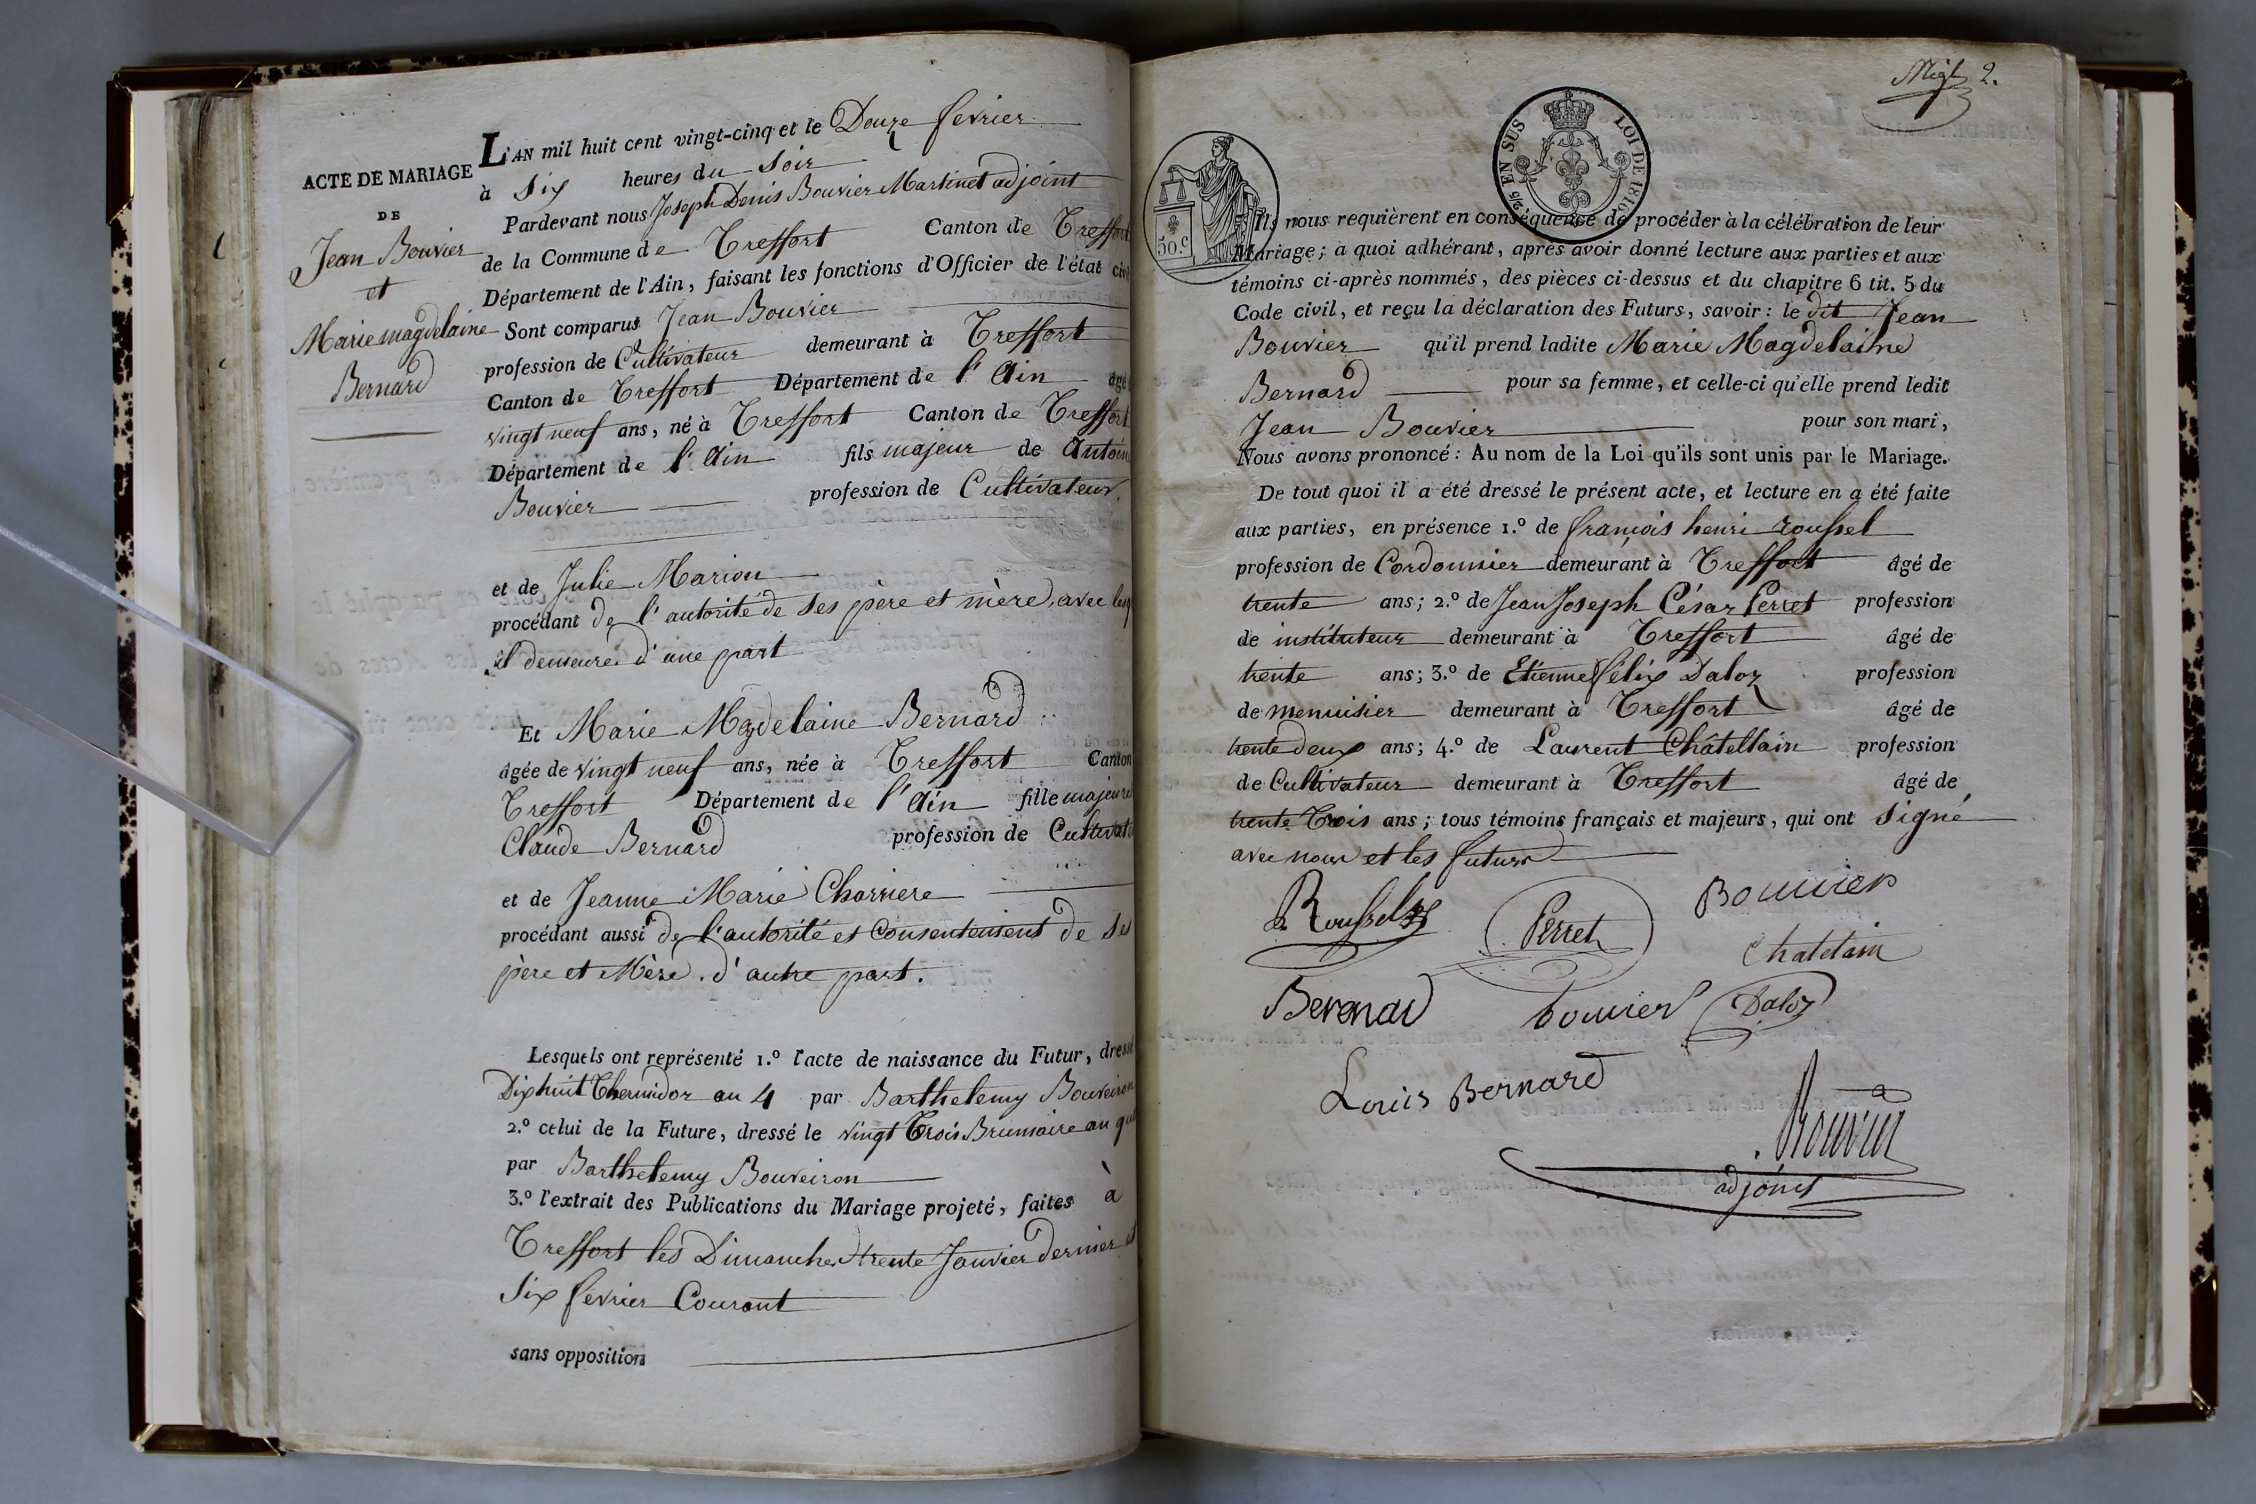 ACTE DE MARIAGE
DE
Jean Bouvier
et
Marie magdelaine
Bernard
L'AN mil huit cent vingt-cinq et le Douze fevrier
à Six heures du Soir
Pardevant nous Joseph Denis Bouvier Martinet adjoint
de la Commune de Treffort Canton de Treffort
Département de l'Ain, faisant les fonctions d'Officier de l'état civ
Sont comparus Jean Bouvier
profession de Cultivateur demeurant à Treffort
Canton de Treffort Département de l'Ain âgé
vingt neuf ans, né à Treffort Canton de Treffort
Département de l'Ain fils majeur de Antoin
Bouvier profession de Cultivateur
et de Julie Marion
procédant de l'autorité de ses père et mère, avec lesq
il demeure d'une part
Et Marie Magdelaine Bernard
âgée de vingt neuf ans, née à Treffort Canton
Treffort Département de l'Ain fille majeure
Claude Bernard profession de Cultivat
et de Jeanne Marie Charriere
procédant aussi de l'autorité et Consentement de ses
père et Mère. d'autre part.
Lesquels ont représenté 1.º l'acte de naissance du Futur, dressé
Dixhuit Thermidor an 4 par Barthelemy Bouveiron
2.º celui de la Future, dressé le vingt Trois Brumaire an qua
par Barthelemy Bouveiron
3.º l'extrait des Publications du Mariage projeté, faites à
Treffort les Dimanches trente Janvier dernier et
Six fevrier Courant
sans opposition
2.
2/5 EN SUS LOI DE 1816
50.c
Ils nous requièrent en conséquence de procéder à la célébration de leur
Mariage; à quoi adhérant, après avoir donné lecture aux parties et aux
témoins ci-après nommés, des pièces ci-dessus et du chapitre 6 tit. 5 du
Code civil, et reçu la déclaration des Futurs, savoir: le dit Jean
Bouvier qu'il prend ladite Marie Magdelaine
Bernard pour sa femme, et celle-ci qu'elle prend ledit
Jean Bouvier pour son mari,
Nous avons prononcé: Au nom de la Loi qu'ils sont unis par le Mariage.
De tout quoi il a été dressé le présent acte, et lecture en a été faite
aux parties, en présence 1.º de francois henri roussel
profession de Cordonnier demeurant à Treffort âgé de
trente ans; 2.º de Jean Joseph César Perret profession
de instituteur demeurant à Treffort âgé de
trente ans; 3.º de Etienne félix Daloz profession
de menuisier demeurant à Treffort âgé de
trente deux ans; 4.º de Laurent Châtellain profession
de Cultivateur demeurant à Treffort âgé de
trente Trois ans; tous témoins français et majeurs, qui ont signé
avec nous et les futurs
Roussel Perret Bouvier
Chatelain
Berenard bouvier Daloz
Louis Bernard
Bouvier
adjoint